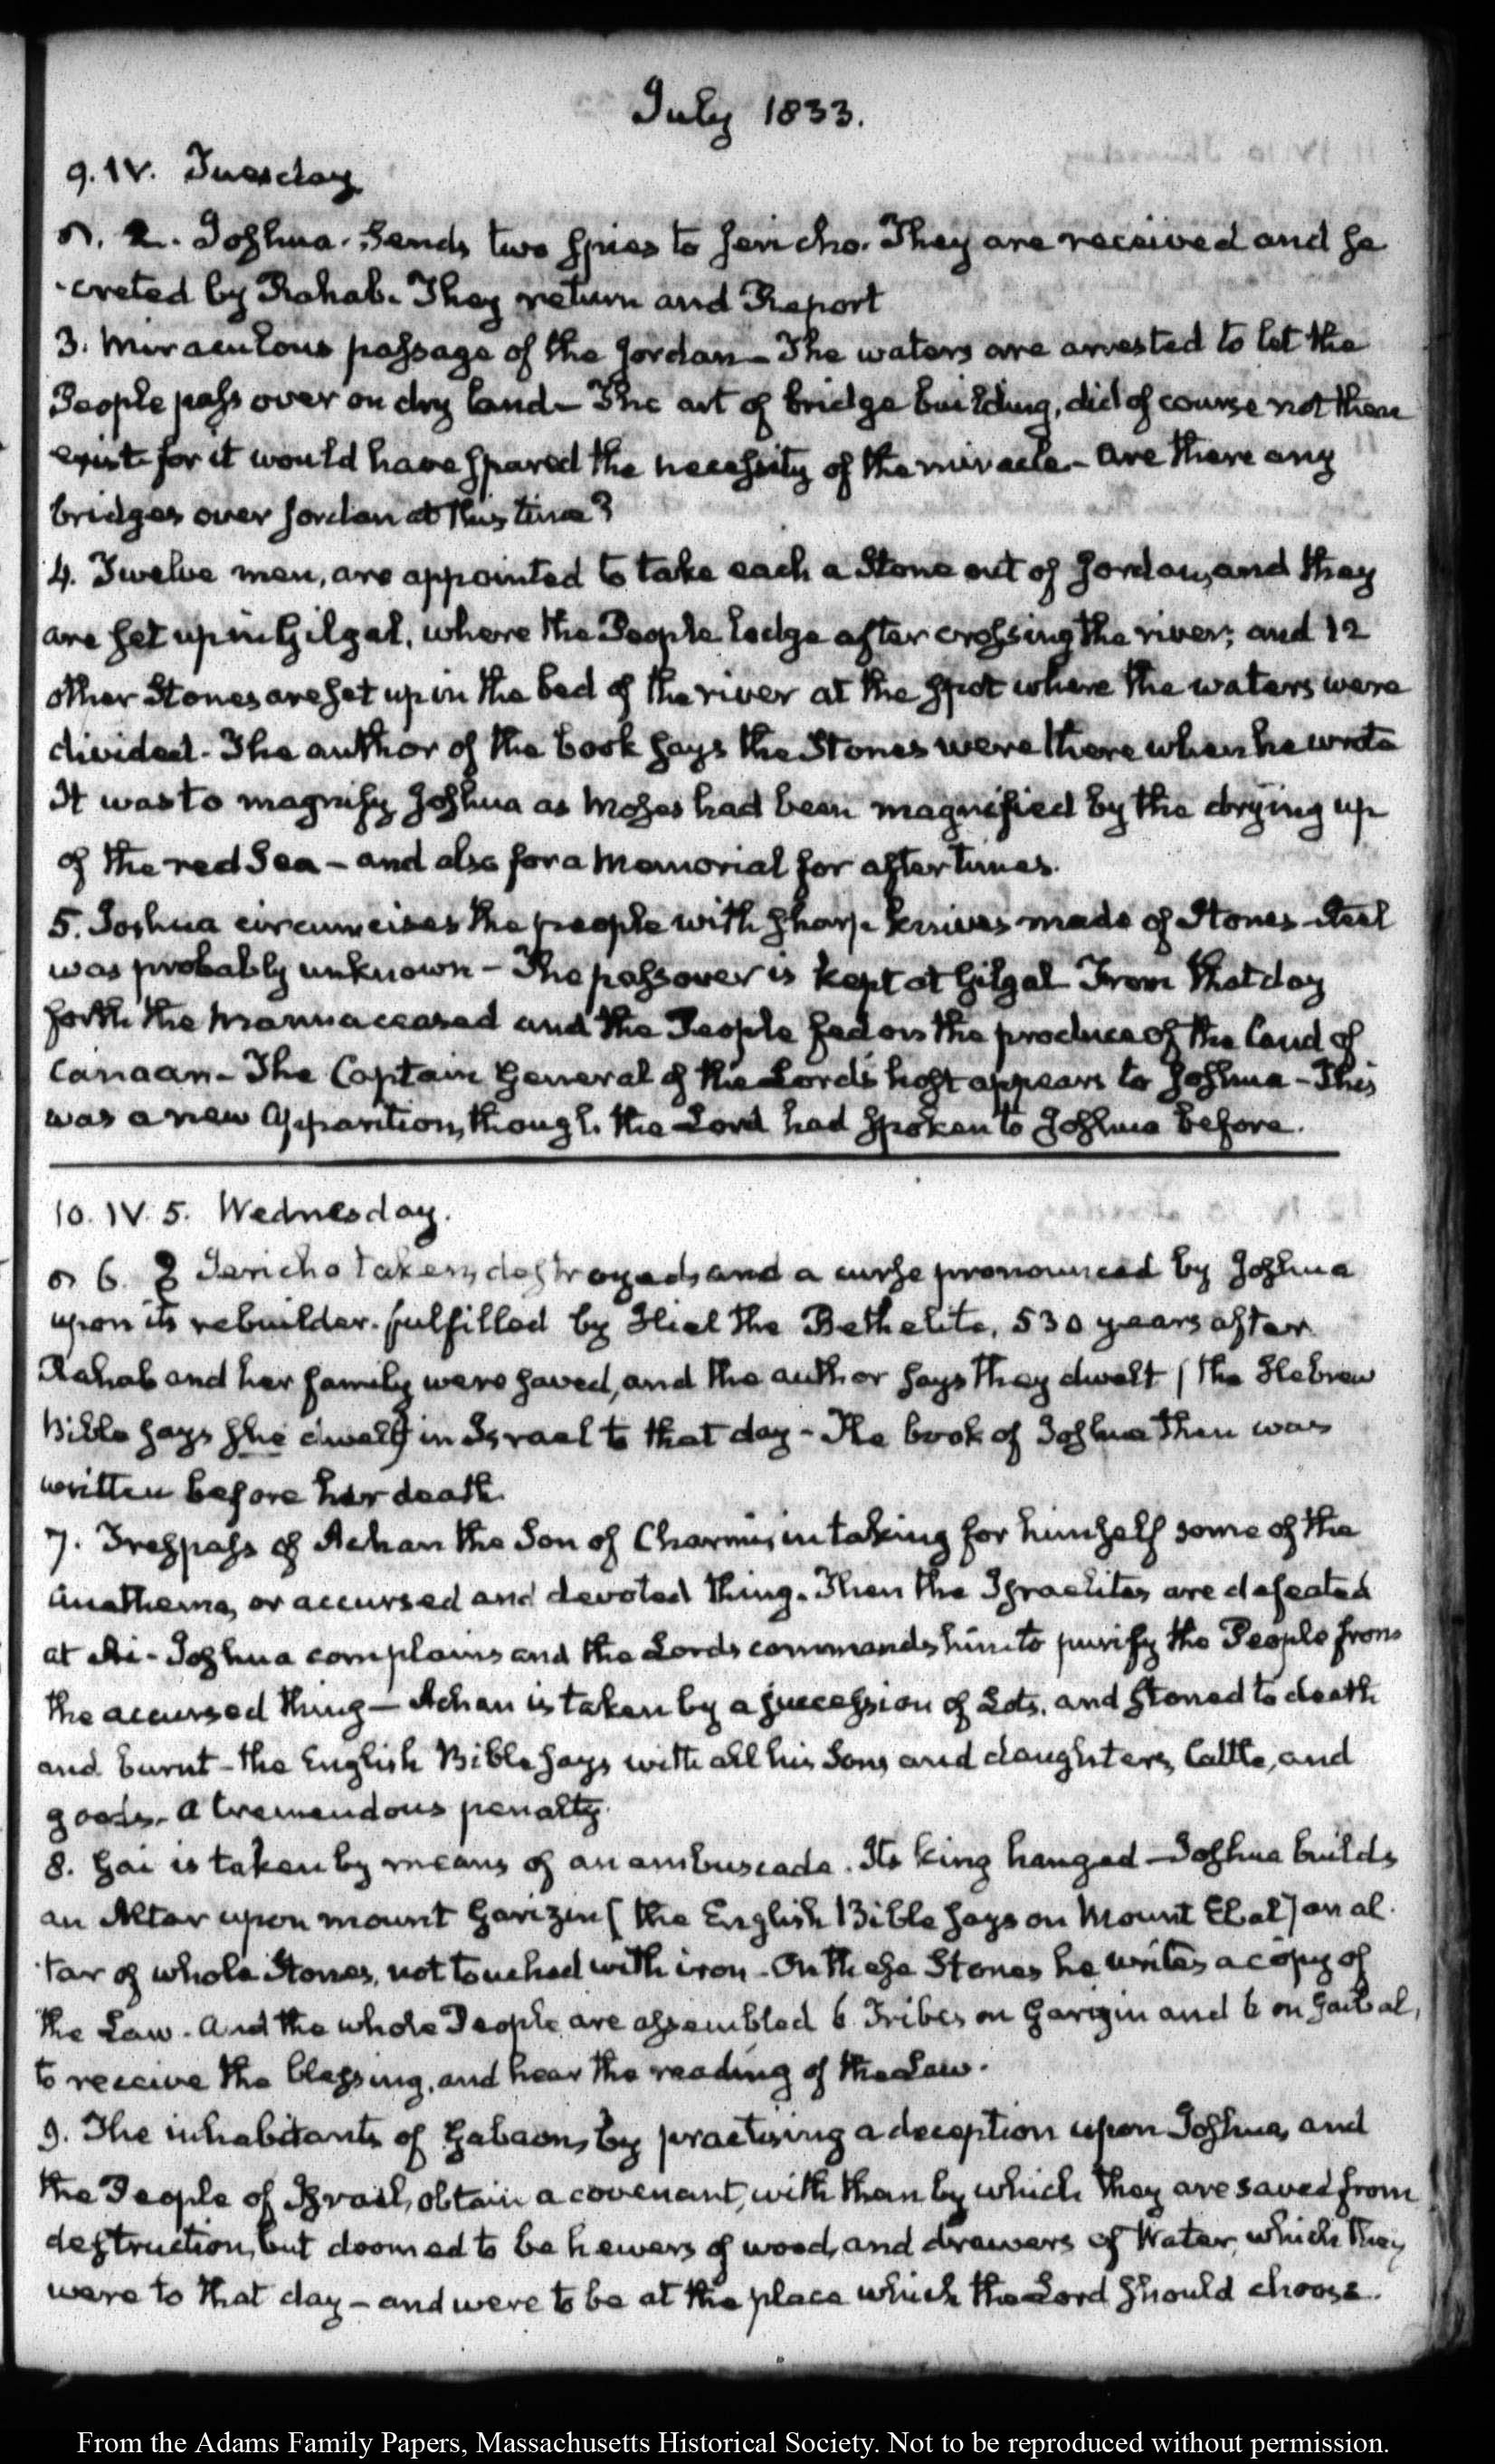 July 1833.
9. IV. Tuesday
2. Joshua. Sends two Spies to Jericho. They are received and se
-creted by Rahab. They return and Report
3. Miraculous passage of the Jordan — The waters are arrested to let the
People pass over on dry land — The art of bridge building, did of course not then
exist for it would have spared the necessity of the miracle — Are there any
bridges over Jordan at this time?
4. Twelve men, are appointed to take each a Stone out of Jordan, and they
are set up in Gilgal, where the People lodge after crossing the river; and 12
other Stones are set up in the bed of the river at the spot where the waters were
divided. The author of the book says the Stones were there when he wrote
It was to magnify Joshua as Moses had been magnified by the drying up
of the red Sea — and also for a Memorial for after times.
5. Joshua circumcises the people with sharp knives made of Stones Steel
was probably unknown — The passover is kept at Gilgal From that day
forth the Manna ceased and the People fed on the produce of the land of
Canaan — The Captain General of the Lord's host appears to Joshua — This
was a new Apparition, though the Lord had spoken to Joshua before.
10. IV. 5. Wednesday.
6. Jericho taken, destroyed, and a curse pronounced by Joshua
upon its rebuilder. fulfilled by Hiel the Bethelite, 530 years after
Rahab and her family were saved, and the author says they dwelt (the Hebrew
Bible says she dwelt) in Israel to that day — The book of Joshua then was
written before her death.
7. Trespass of Achan the Son of Charmi, in taking for himself some of the
anathema, or accursed and devoted thing. Then the Israelites are defeated
at Ai — Joshua complains and the Lord commands him to purify the People from
the accursed thing — Achan is taken by a succession of Lots, and stoned to death
and burnt — the English Bible says with all his Sons and daughters, Cattle, and
goods — A tremendous penalty.
8. Gai is taken by means of an ambuscade. Its king hanged — Joshua builds
an Altar upon mount Garizin [the English Bible says on Mount Ebal] an al-
tar of whole Stones, not touched with iron — On these Stones he writes a copy of
the Law. And the whole People are assembled 6 Tribes on Garizin and 6 on Gaibal,
to receive the blessing, and hear the reading of the Law.
9. The inhabitants of Gabaon, by practising a deception upon Joshua, and
the People of Israel, obtain a covenant, with them by which they are saved from
destruction, but doomed to be hewers of wood, and drawers of Water, which they
were to that day — and were to be at the place which the Lord should choose.
From the Adams Family Papers, Massachusetts Historical Society. Not to be reproduced without permission.